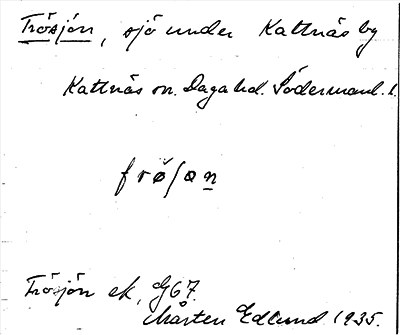 Frösjön, sjö under Kattnäs by
Kattnäs sn. Daga hd. Södermanl. l.
frø̆ʃøn
Frösjön ek, G67.
Mårten Edlund 1935.